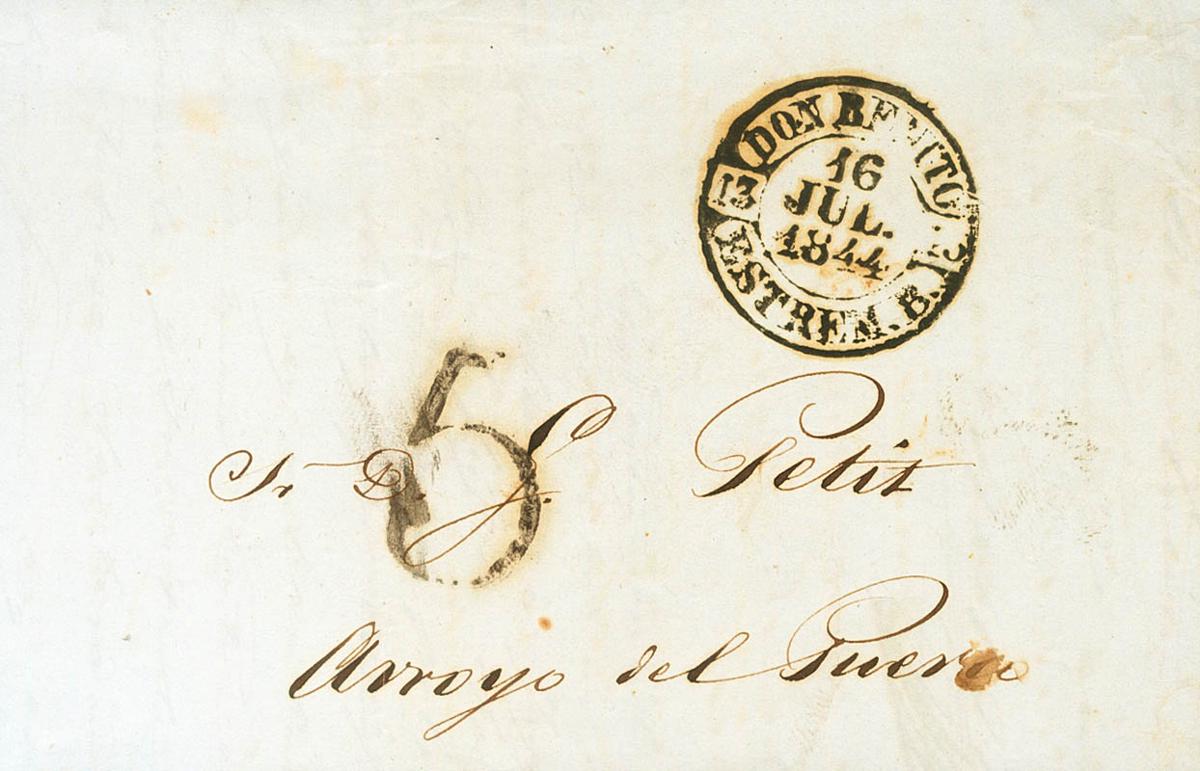 DON BENITO
13
16
JUL.
1844
ESTREM. B.
5
Sr D. J. Petit
Arroyo del Puerco